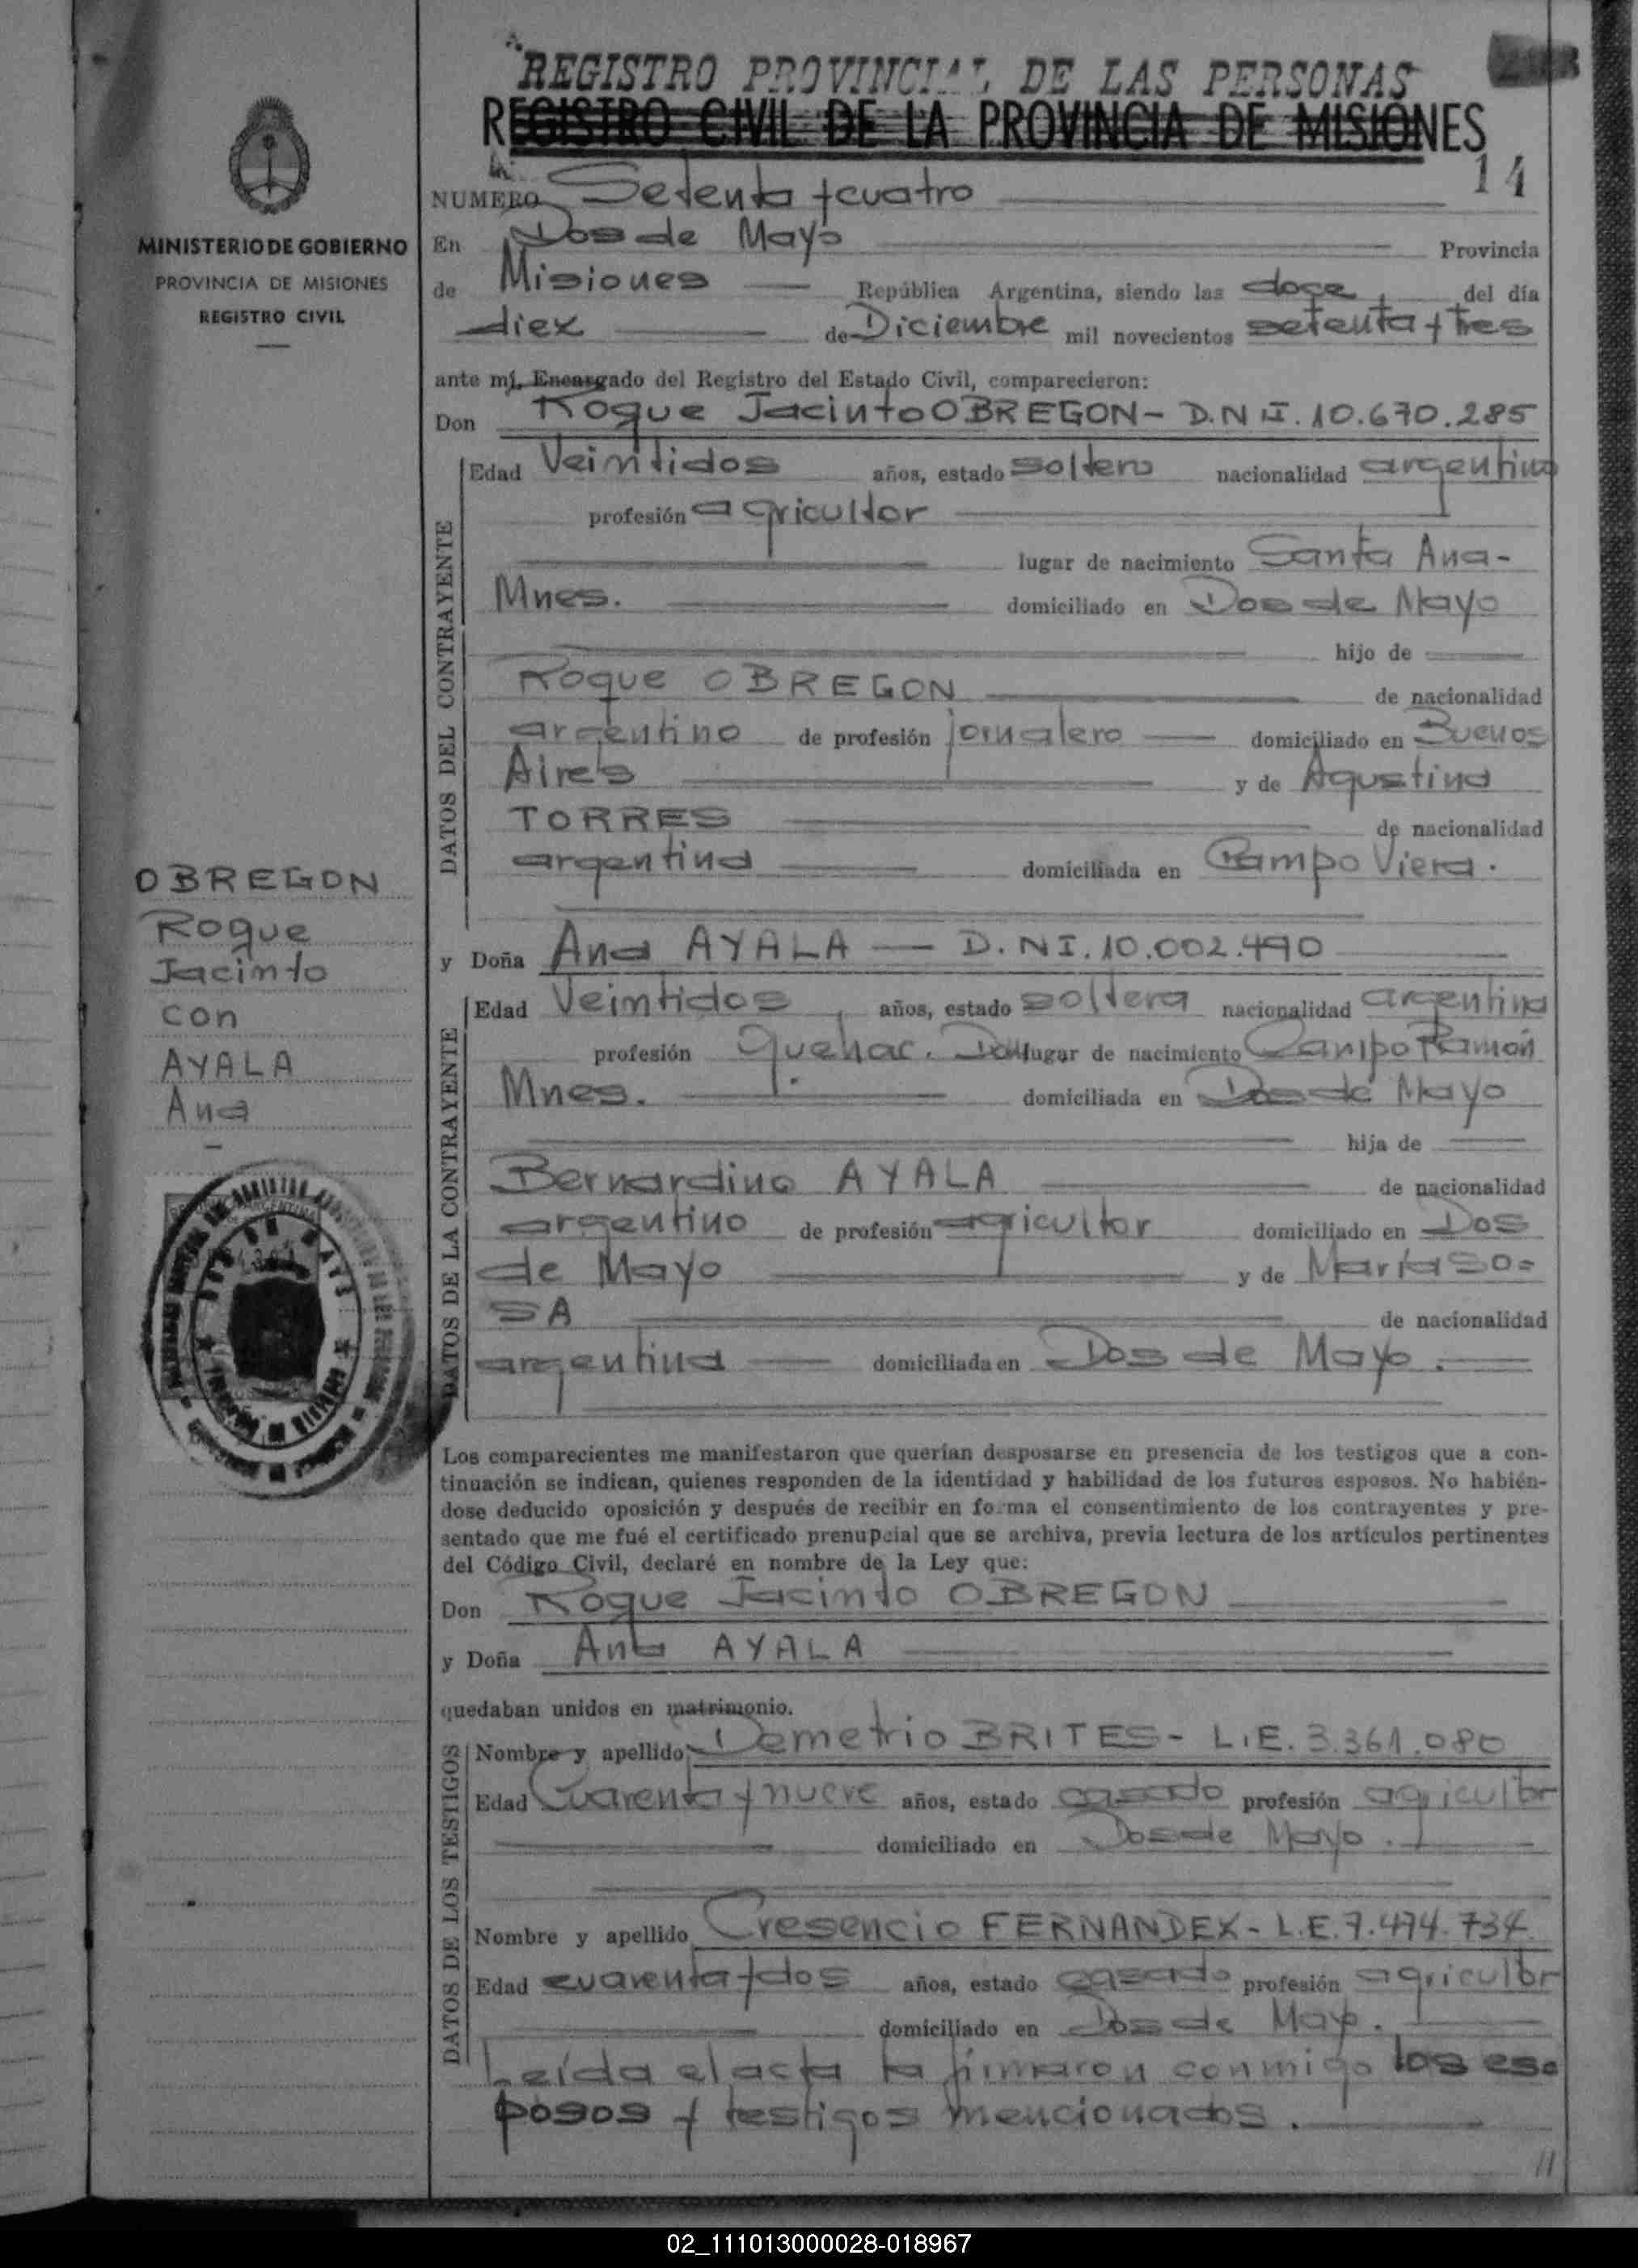 REGISTRO PROVINCIAL DE LAS PERSONAS
REGISTRO CIVIL DE LA PROVINCIA DE MISIONES
14
MINISTERIO DE GOBIERNO
PROVINCIA DE MISIONES
REGISTRO CIVIL
NUMERO Setenta y cuatro
En Dos de Mayo Provincia
de Misiones República Argentina, siendo las doce del día
diez de Diciembre mil novecientos setenta y tres
ante mí, Encargado del Registro del Estado Civil, comparecieron:
Don Roque Jacinto OBREGON - D.N.I. 10.670.285
DATOS DEL CONTRAYENTE
Edad Veintidos años, estado soltero nacionalidad argentino
profesión agricultor
lugar de nacimiento Santa Ana-
Mnes. domiciliado en Dos de Mayo
hijo de
Roque OBREGON de nacionalidad
argentino de profesión jornalero domiciliado en Buenos
Aires y de Agustina
TORRES de nacionalidad
argentina domiciliada en Campo Viera.
OBREGON
Roque
Jacinto
con
AYALA
Ana
y Doña Ana AYALA - D.N.I. 10.002.490
DATOS DE LA CONTRAYENTE
Edad Veintidos años, estado soltera nacionalidad argentina
profesión Quehac. Dom. lugar de nacimiento Campo Ramón
Mnes. domiciliada en Dos de Mayo
hija de
Bernardino AYALA de nacionalidad
argentino de profesión agricultor domiciliado en Dos
de Mayo y de María SO=
SA de nacionalidad
argentina domiciliada en Dos de Mayo.
Los comparecientes me manifestaron que querían desposarse en presencia de los testigos que a con-
tinuación se indican, quienes responden de la identidad y habilidad de los futuros esposos. No habién-
dose deducido oposición y después de recibir en forma el consentimiento de los contrayentes y pre-
sentado que me fué el certificado prenupcial que se archiva, previa lectura de los artículos pertinentes
del Código Civil, declaré en nombre de la Ley que:
Don Roque Jacinto OBREGON
y Doña Ana AYALA
quedaban unidos en matrimonio.
DATOS DE LOS TESTIGOS
Nombre y apellido Demetrio BRITES - L.E. 3.361.080
Edad Cuarenta y nueve años, estado casado profesión agricultor
domiciliado en Dos de Mayo.
Nombre y apellido Cresencio FERNANDEZ - L.E. 7.474.734
Edad cuarenta y dos años, estado casado profesión agricultor
domiciliado en Dos de Mayo.
Leída el acta la firmaron conmigo los es=
posos y testigos mencionados.
02_111013000028-018967